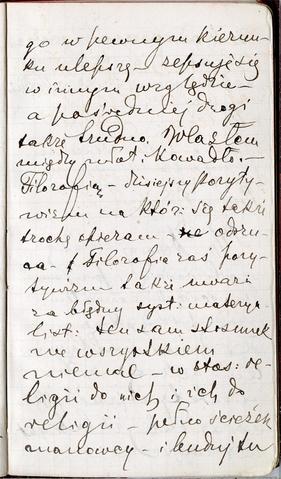 go w pewnym kierun-
ku ulepszę – zepsuję się
w innym względzie –
a pośredniej drogi
także trudno. Wlazłem
między młot i Kowadło. –
Filozofią – dzisiejszy pozyty-
wizm na któr: się także
trochę opieram – odrzu-
ca – Filozofia zaś pozy-
tywizm także uważa
za błędny syst: materya-
list: ten sam stosunek
we wszystkiem
niemal – w stos: re-
ligii do nich i ich do
religii – pełno ścieżek
manowcy – i bądź tu